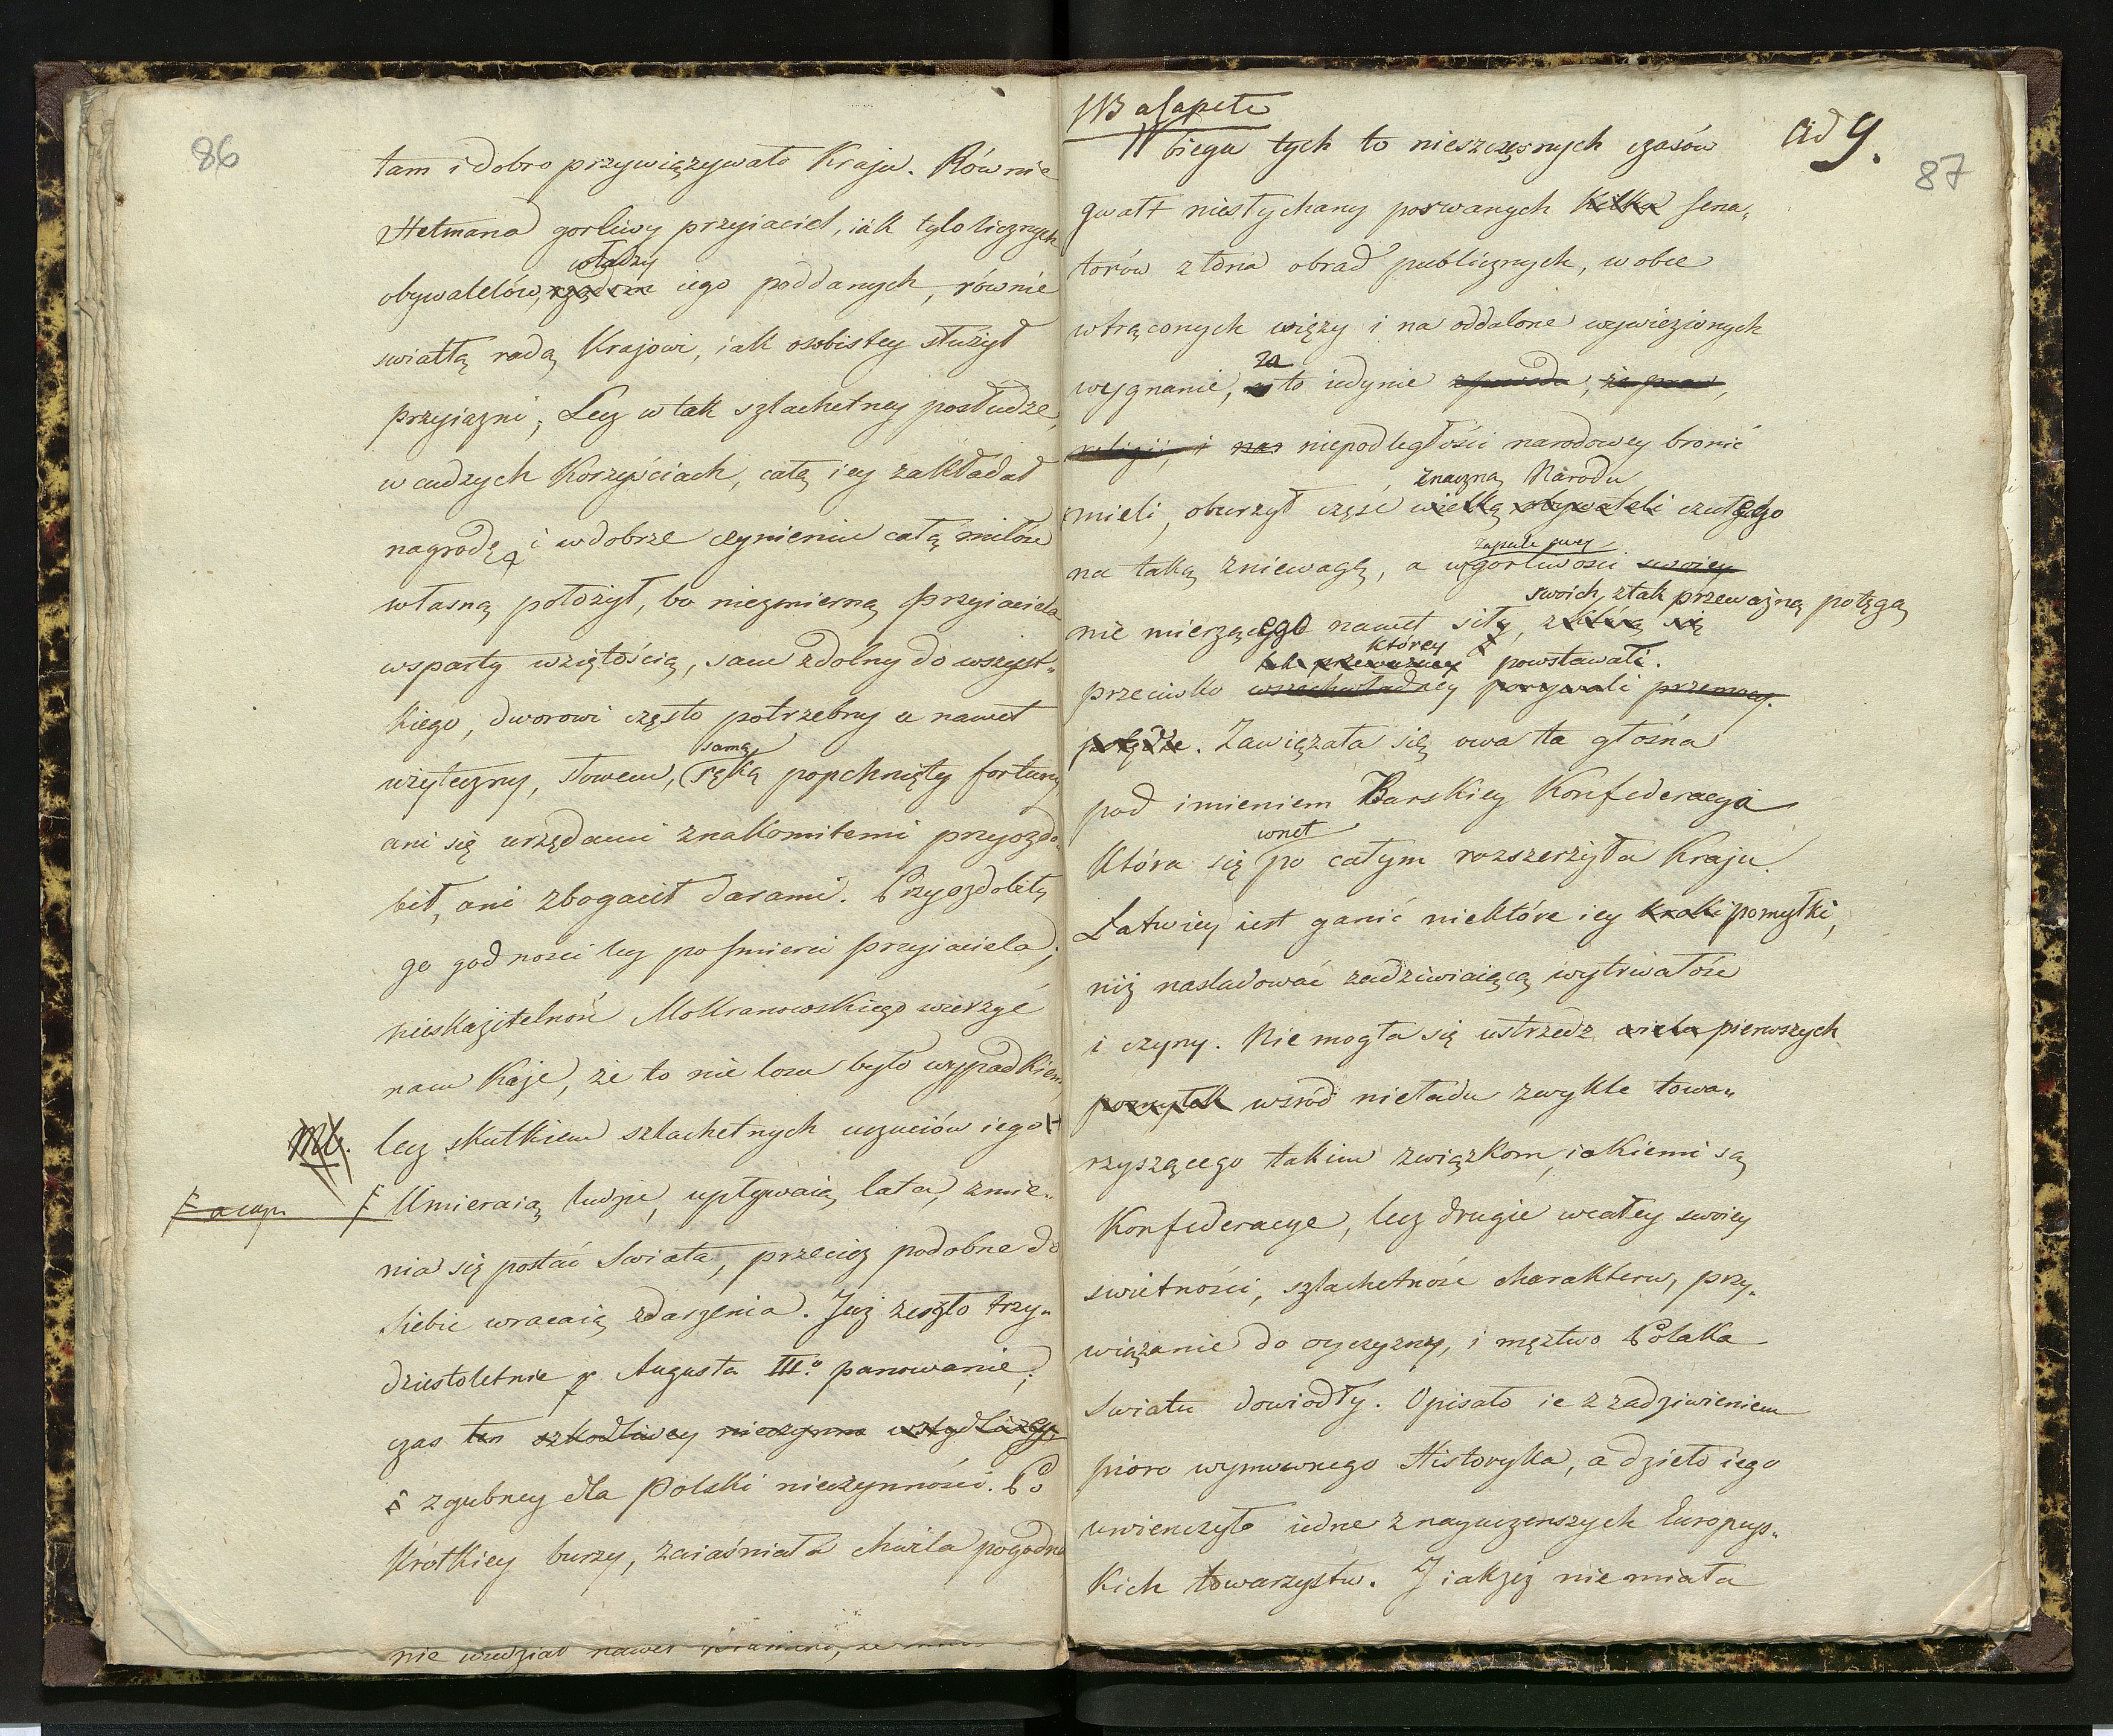 86
tam i dobro przywiązywało Kraju. Równie
Hetmana gorliwy przyiaciel, iak tylo licznych
władzy
obywatelów, rządom iego poddanych, równie
swiatłą radą Krajowi, iak osobistey służył
przyiazni; Lecz w tak szlachetney posłudze,
w cudzych Korzyściach, całą iey zakładał
nagrodę, i w dobrze czynieniu całą miłość
własną położył, bo niezmierną przyiaciela
wsparty wziętością, sam zdolny do wszyst„
kiego, dworowi często potrzebny a nawet
samą
użyteczny, słowem, ręką popchnięty fortuny
ani się urzędami znakomitemi przyozdo„
bił, ani zbogacił darami. Przyozdobiły
go godności lecz po smierci przyiaciela;
nieskazitelność Mokranowskiego wierzyć
nam Każe, że to nie losu było wypadkiem,
Mb. lecz skutkiem szlachetnych uczuciów iego
Umieraią ludzie, upływaią lata, zmie„
nia się postać Swiata, przecież podobne do
siebie wracaią zdarzenia. Już zeszło trzy„
dziestoletnie Augusta IIIº panowanie;
czas ten szkodliwey nieczynno wstydliwey
i zgubney dla Polski nieczynności. Po
Krótkiey burzy, zaiaśniała chwila pogodna
nie widział nawet
ad 9.
87
W biegu tych to nieszczęsnych czasów
gwałt niesłychany porwanych Kilku Sena„
torów z łona obrad publicznych, w obce
wtrąconych więzy i na oddalone wywiezionych
za
wygnanie, to iedynie
religii, i niepodległości narodowey bronić
znaczną Narodu
smieli, oburzył część wielką obywateli czułego
zapale swey
na taką zniewagę, a w gorliwości swoiey
swoich, z tak przeważną potęgą
nie mierzącego nawet siły, z którą się
którey powstawała.
przeciwko wszechwładney porywali przemocy.
potędze. Zawiązała się owa ta głośna
pod imieniem Barskiey Konfederacya
wnet
Która się po całym rozszerzyła Kraju.
Łatwiey iest ganić niektóre iey kroki pomyłki,
niż nasladować zadziwiaiącą wytrwałość
i czyny. Nie mogła się ustrzedz wielu pierwszych
pomyłek wśrod nieładu zwykle towa„
rzyszącego takim związkom, iakiemi są
Konfederacye, lecz drugie w całey swoiey
swietności, szlachetność charakteru, przy„
wiązanie do oyczyzny, i męztwo Polaka
Swiatu dowiodły. Opisało ie z zadziwieniem
pióro wymownego Historyka, a dzieło iego
uwienczyło iedne z nayuczenszych Europeys„
Kich towarzystw. J iakżeż nie miała